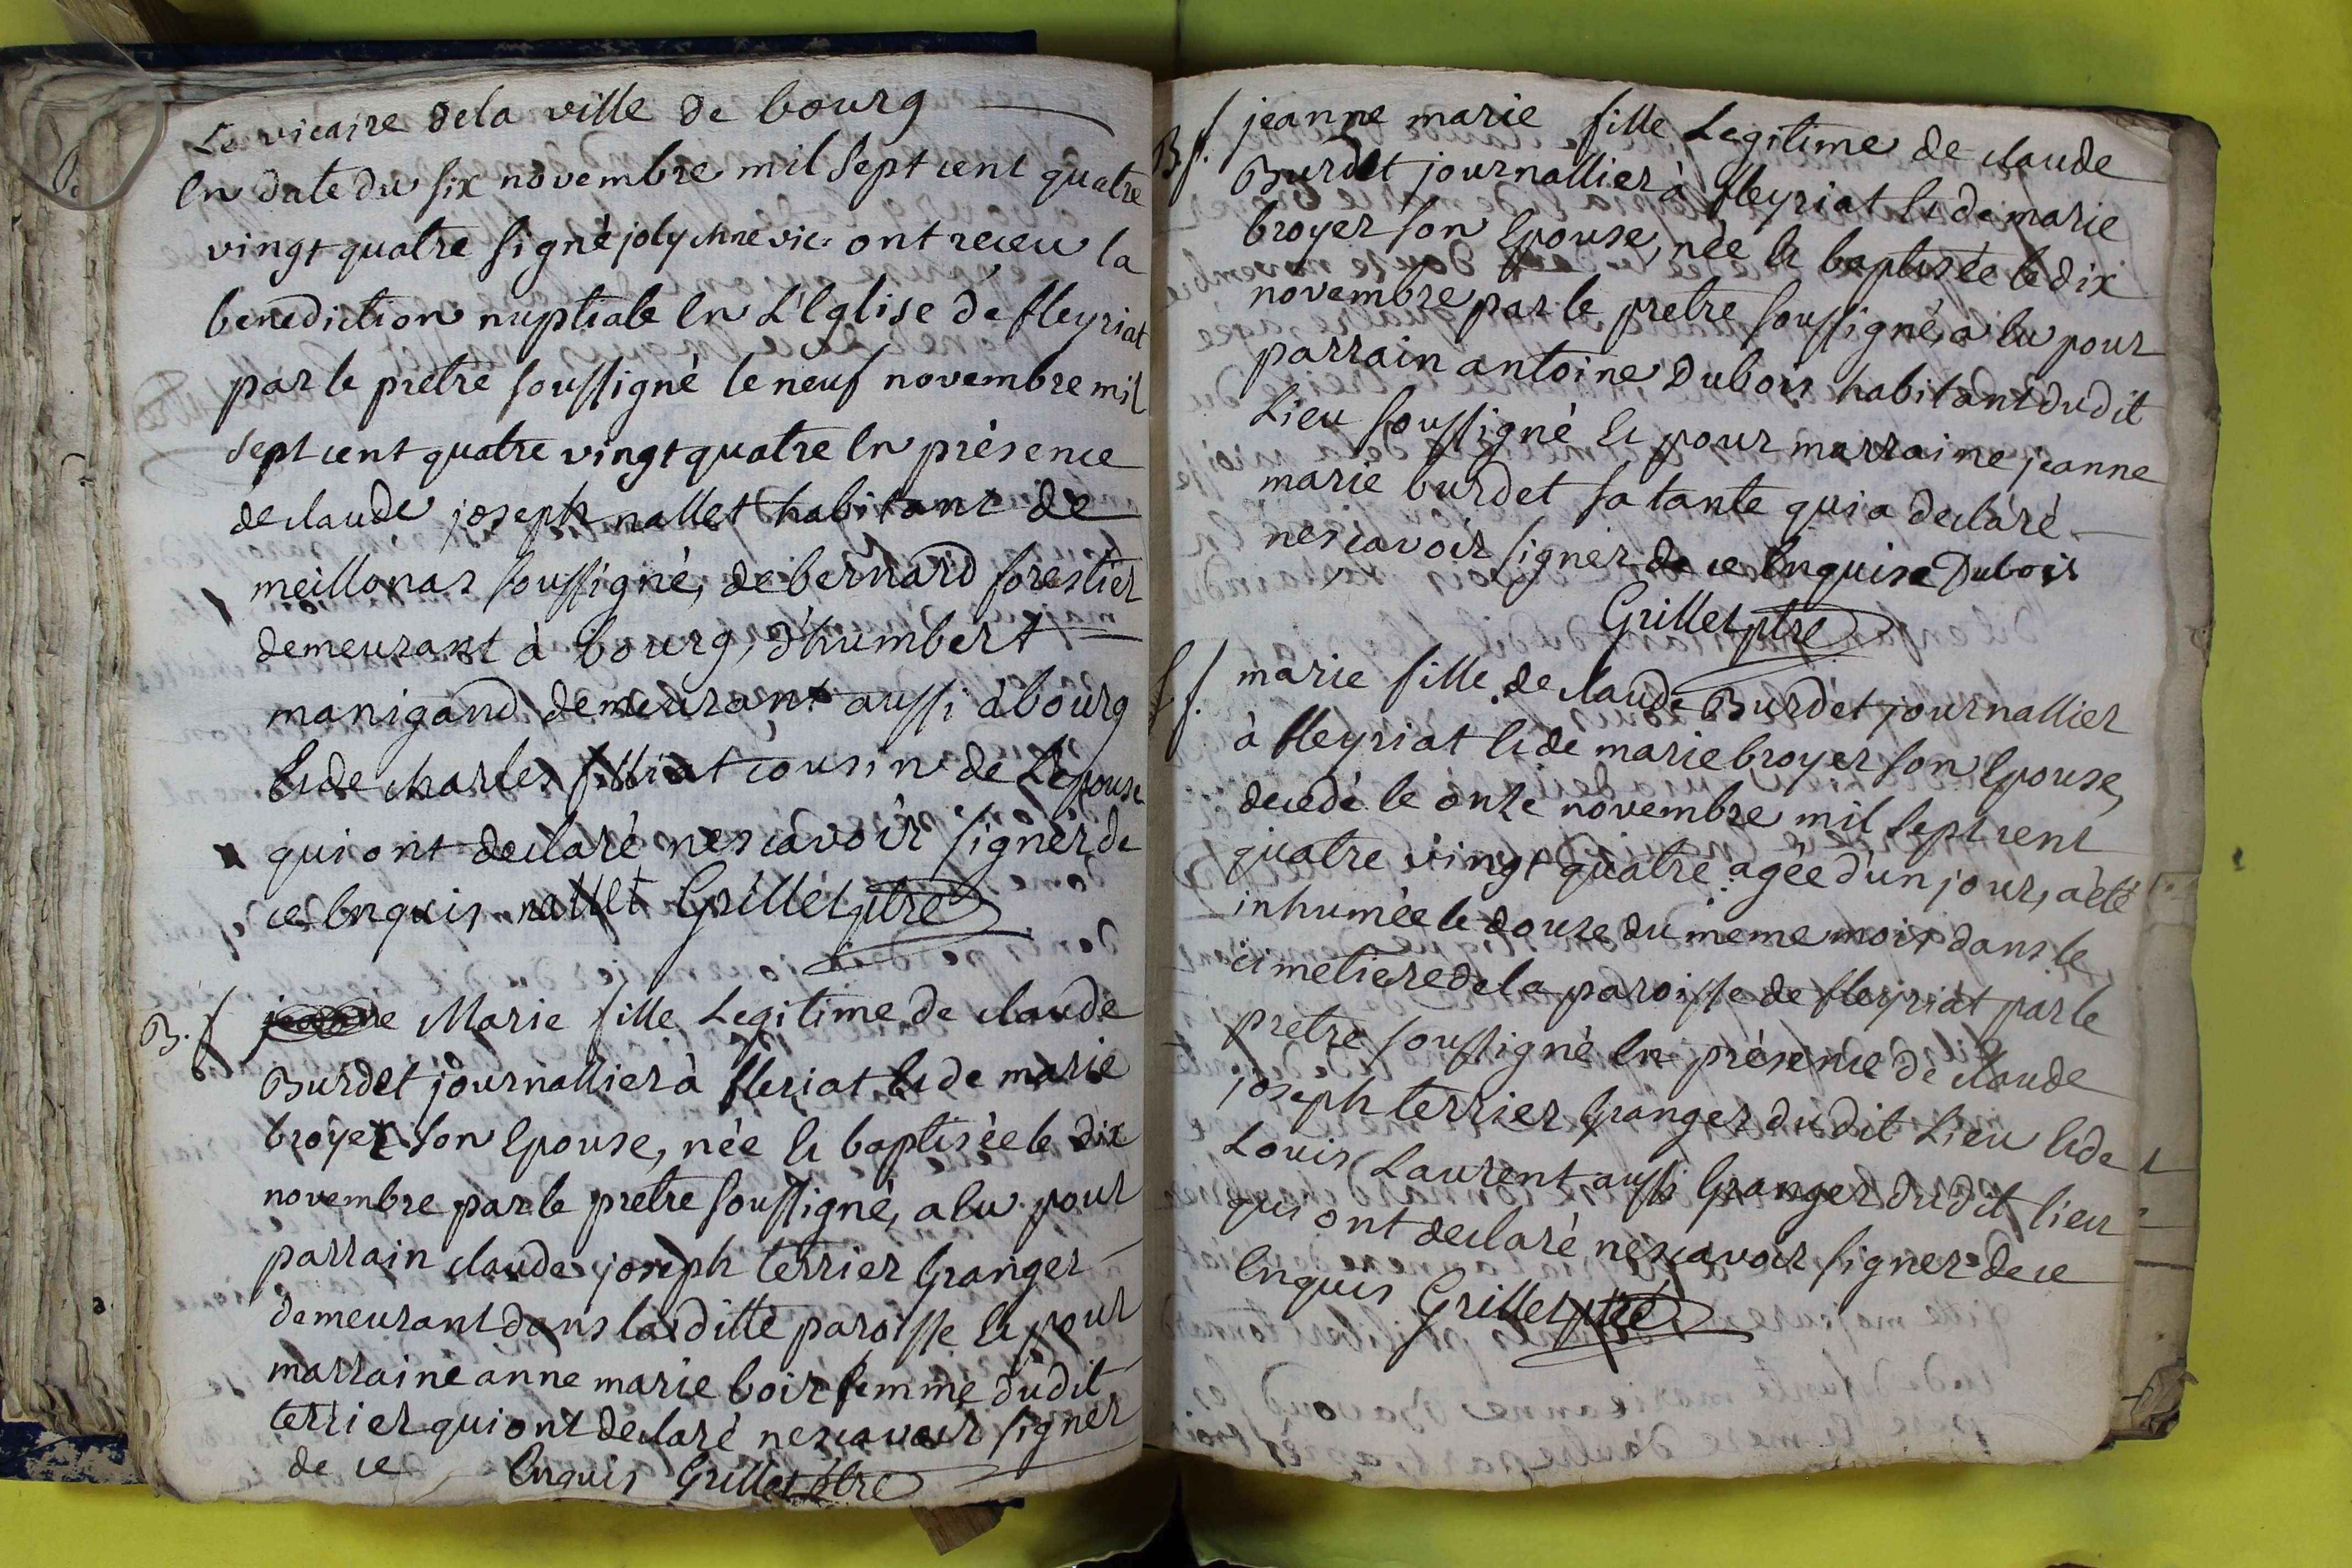 Le vicaire dela ville de bourg
En date du six novembre mil sept cent quatre
vingt quatre signé joly chne vic. ont receu la
benediction nuptiale en L'Eglise de fleyriat
par le pretre soussigné le neuf novembre mil
sept cent quatre vingt quatre en présence
de claude joseph nallet habitant de
meillonas soussigné, de bernard forestier
demeurant à bourg, d'humbert
manigand demeurant aussi à bourg
et de charles filliat cousin de L'epouse
qui ont declaré ne scavoir signer de
ce enquis nallet Grillet ptre
B. f. Marie fille Legitime de claude
Burdet journallier à fleriat et de marie
broyer son epouse, née et baptisée le dix
novembre par le pretre soussigné, a eu pour
parrain claude joseph terrier Granger
demeurant dans la ditte paroisse et pour
marraine anne marie boir femme dudit
terrier qui ont declaré ne scavoir signer
de ce enquis Grillet ptre
B. f. jeanne marie fille Legitime de claude
Burdet journallier à fleyriat et de marie
broyer son epouse, née et baptisée le dix
novembre par le pretre soussigné, a eu pour
parrain antoine Dubois habitant dudit
Lieu soussigné et pour marraine jeanne
marie burdet sa tante qui a declaré
ne scavoir signer de ce enquise Dubois
Grillet ptre
f. marie fille de claude Burdet journallier
à fleyriat et de marie broyer son epouse,
decedé le onze novembre mil sept cent
quatre vingt quatre agée d'un jour, a été
inhumée le douze du meme mois dans le
cimetiere dela paroisse de fleyriat par le
pretre soussigné en présence de claude
joseph terrier Granger du dit Lieu et de
Louis Laurent aussi Granger dudit lieu
qui ont declaré ne scavoir signer de ce
enquis Grillet ptre